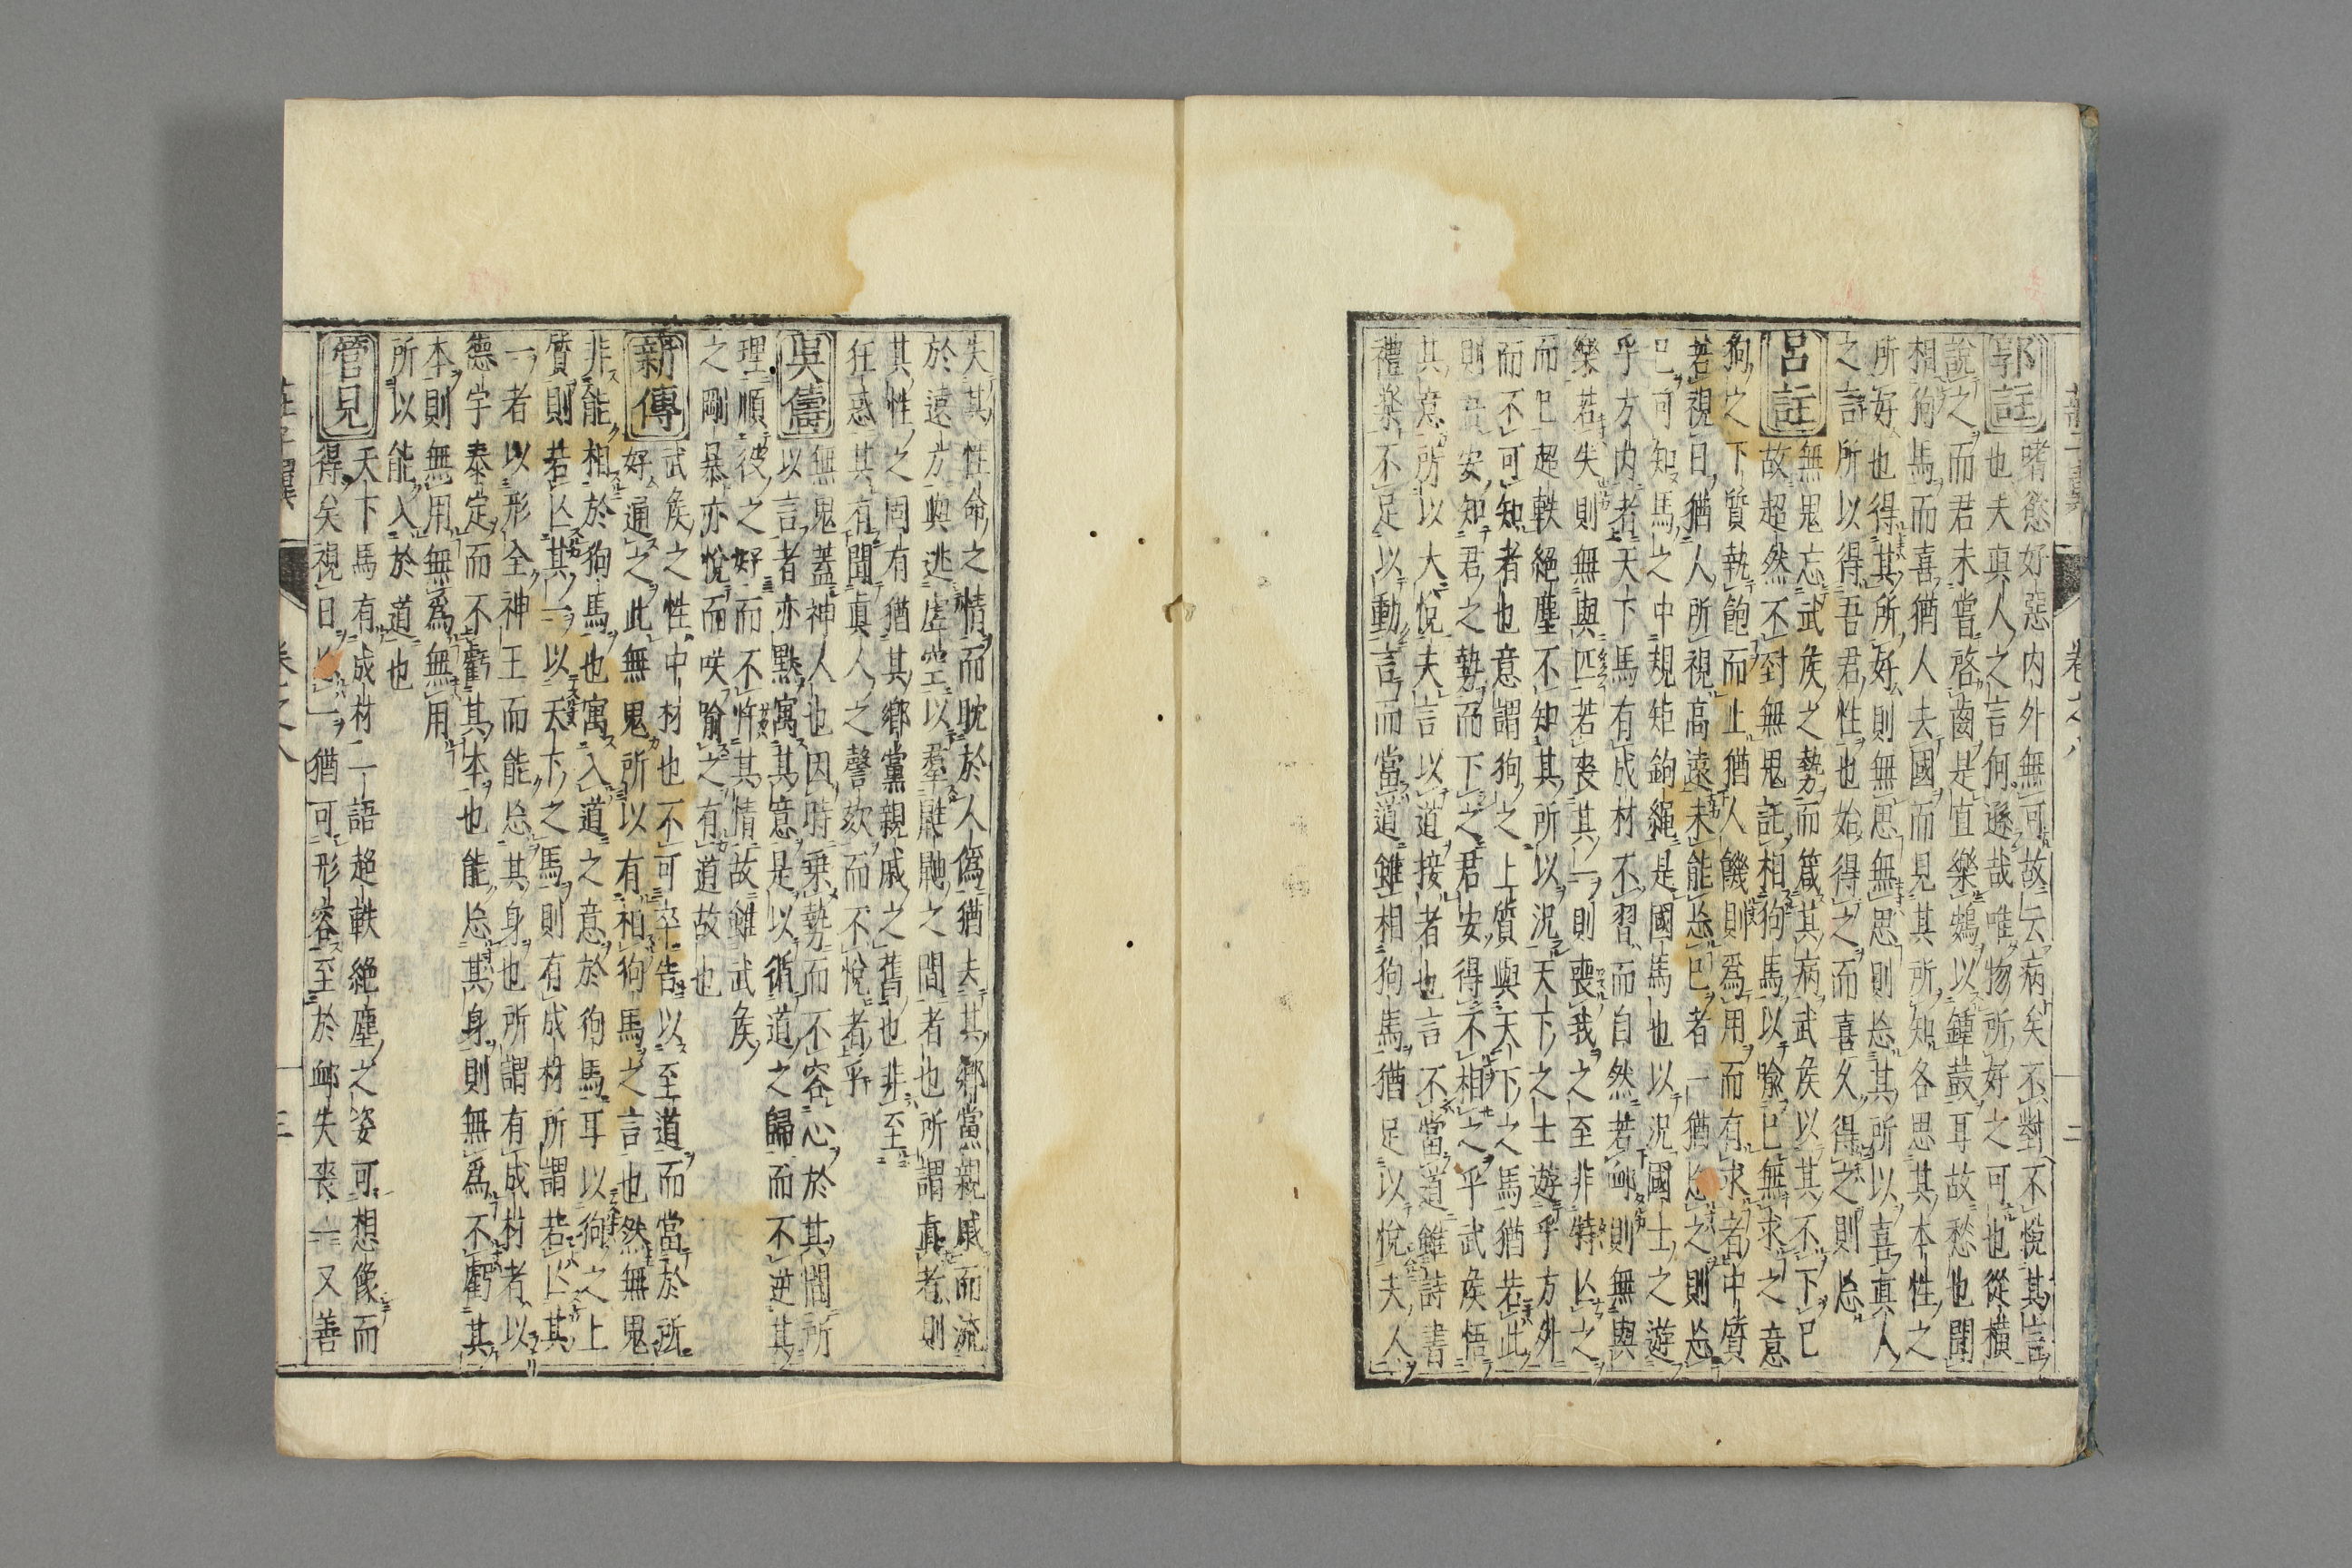 郭註 嗜慾好惡內外無可故云病矣不對不悅其言
也夫真人之言何遜哉唯物所好之可也從橫
說之而君未嘗啓齒是直樂鴳以鍾鼓耳故愁也聞
相狗馬而喜猶人去國而見其所知各思其本性之
所好也得其所好則無思無思則忘其所以喜真人
之言所以得吾君性也始得之而喜久得之則忘
呂註 無鬼忘武侯之勢而箴其病武侯以其不下已
故超然不對無鬼託相狗馬以喻已無求之意
狗之下質執飽而止猶人饑則為用而有求者中質
若視日猶人所視高遠未能忘已者一猶忘之則忘
已可知馬之中規矩鉤繩是國馬也以況國士之遊
乎方內者天下馬有成材不習而自然若卹則無與
樂若失則無與匹若喪其一則喪我之至非特亾之
而已超軼絕塵不知其所以況天下之士遊乎方外
而不可知者也意謂狗之上質與天下之馬猶若此
則吾安知君之勢而下之君安得不相之乎武侯悟
其意所以大悅夫言以道接者也言不當道雖詩書
禮樂不足以動言而當道雖相狗馬猶足以悅夫人
失其性命之情而耽於人偽猶去其鄉黨親戚而流
於遠方與逃虛空以羣鼪鼬之間者也所謂真者則
其性之固有猶其鄉黨親戚之舊也非至
狂惑其有聞真人之謦欬而不悅者乎
吳儔 無鬼蓋神人也因時乗勢而不容心於其間所
以言者亦默寓其意是以循道之歸而不逆其
理順彼之好而不忤其情故雖武侯
之剛暴亦悅而咲喻之有道故也
新傳 武侯之性中材也不可卒告以至道而當於所
好通之此無鬼所以有相狗馬之言也然無鬼
非能相於狗馬也寓入道之意於狗馬耳以狗之上
質則若亾其一以天下之馬則有成材所謂若亾其
一者以形全神王而能忘其身也所謂有成材者以
德宇泰定而不虧其本也能忘其身則無為不虧其
本則無用無為無用
所以能入於道也
管見 天下馬有成材一語超軼絕塵之姿可想像而
得矣視日 一猶可形容至於卹失喪一又善
卷之八
三